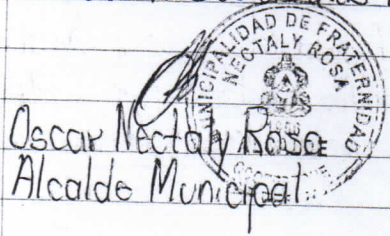 MUNICIPALIDAD DE FRATERNIDAD
NECTALY ROSA
Oscar Nectaly Rosa
Alcalde Municipal